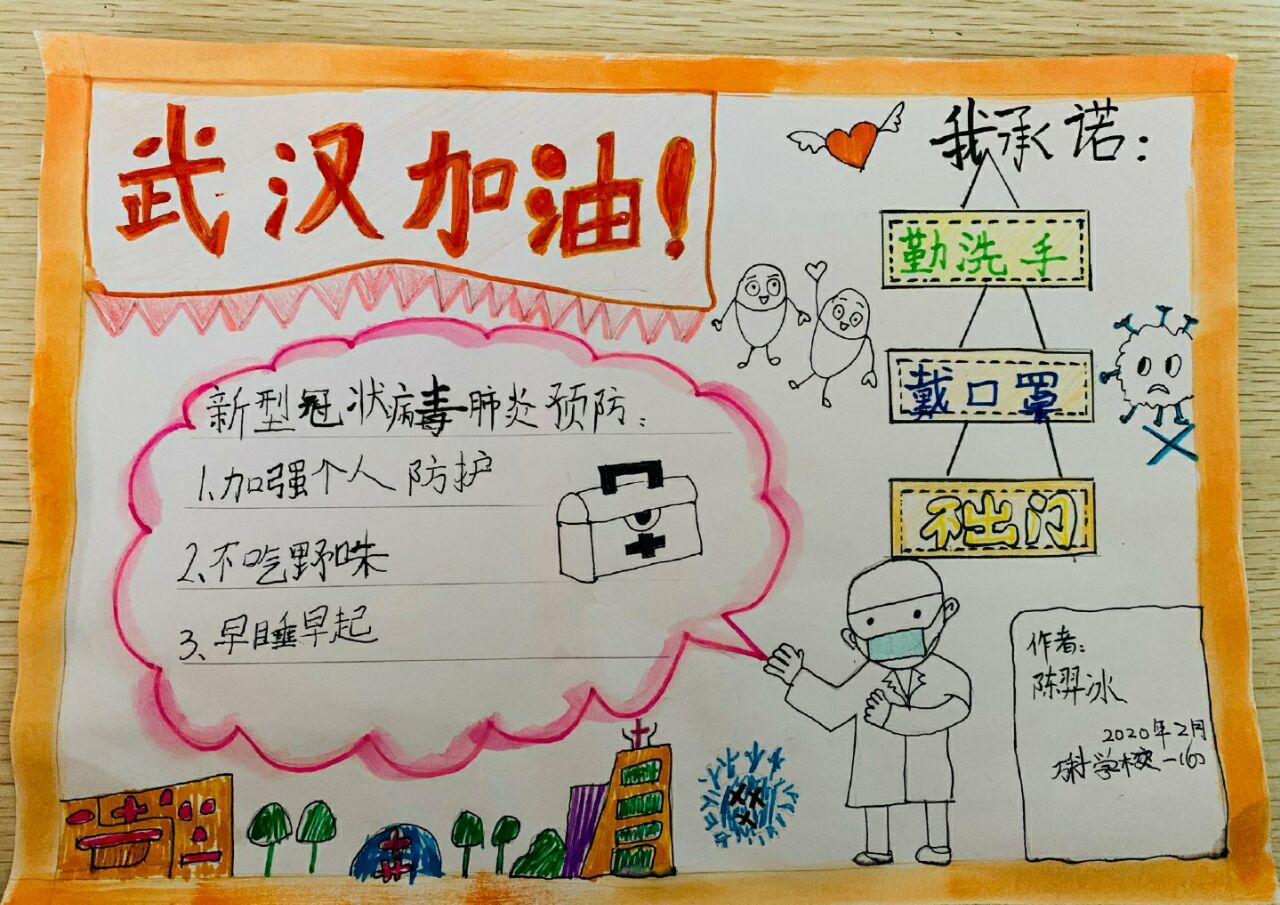 武汉加油!
我承诺:
勤洗手
戴口罩
不出门
新型冠状病毒肺炎预防:
1、加强个人防护
2、不吃野味
3、早睡早起
作者:
陈羿冰
2020年2月
学校一(6)